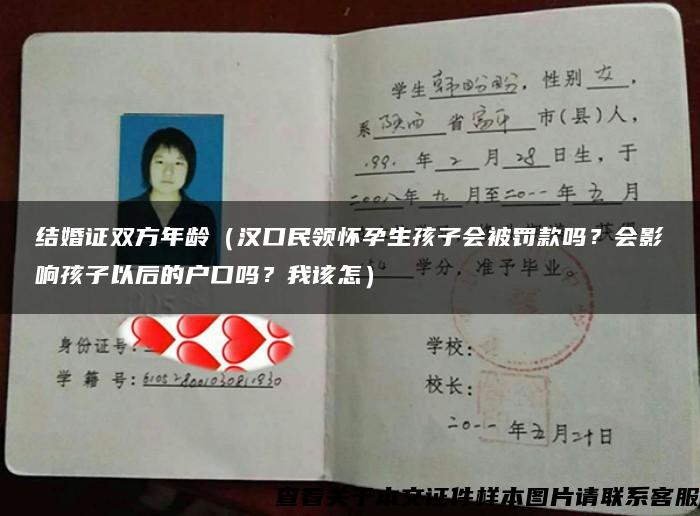 学生韩盼盼，性别女，
系陕西省富平市(县)人，
1991年2月28日生，于
二00八年九月至二0一一年五月
结婚证双方年龄（汉口民领怀孕生孩子会被罚款吗？会影
响孩子以后的户口吗？我该怎）
154学分，准予毕业。
身份证号：
学籍号：610528001030811930
学校：
校长：
二0一一年五月二十日
查看关于本文证件样本图片请联系客服